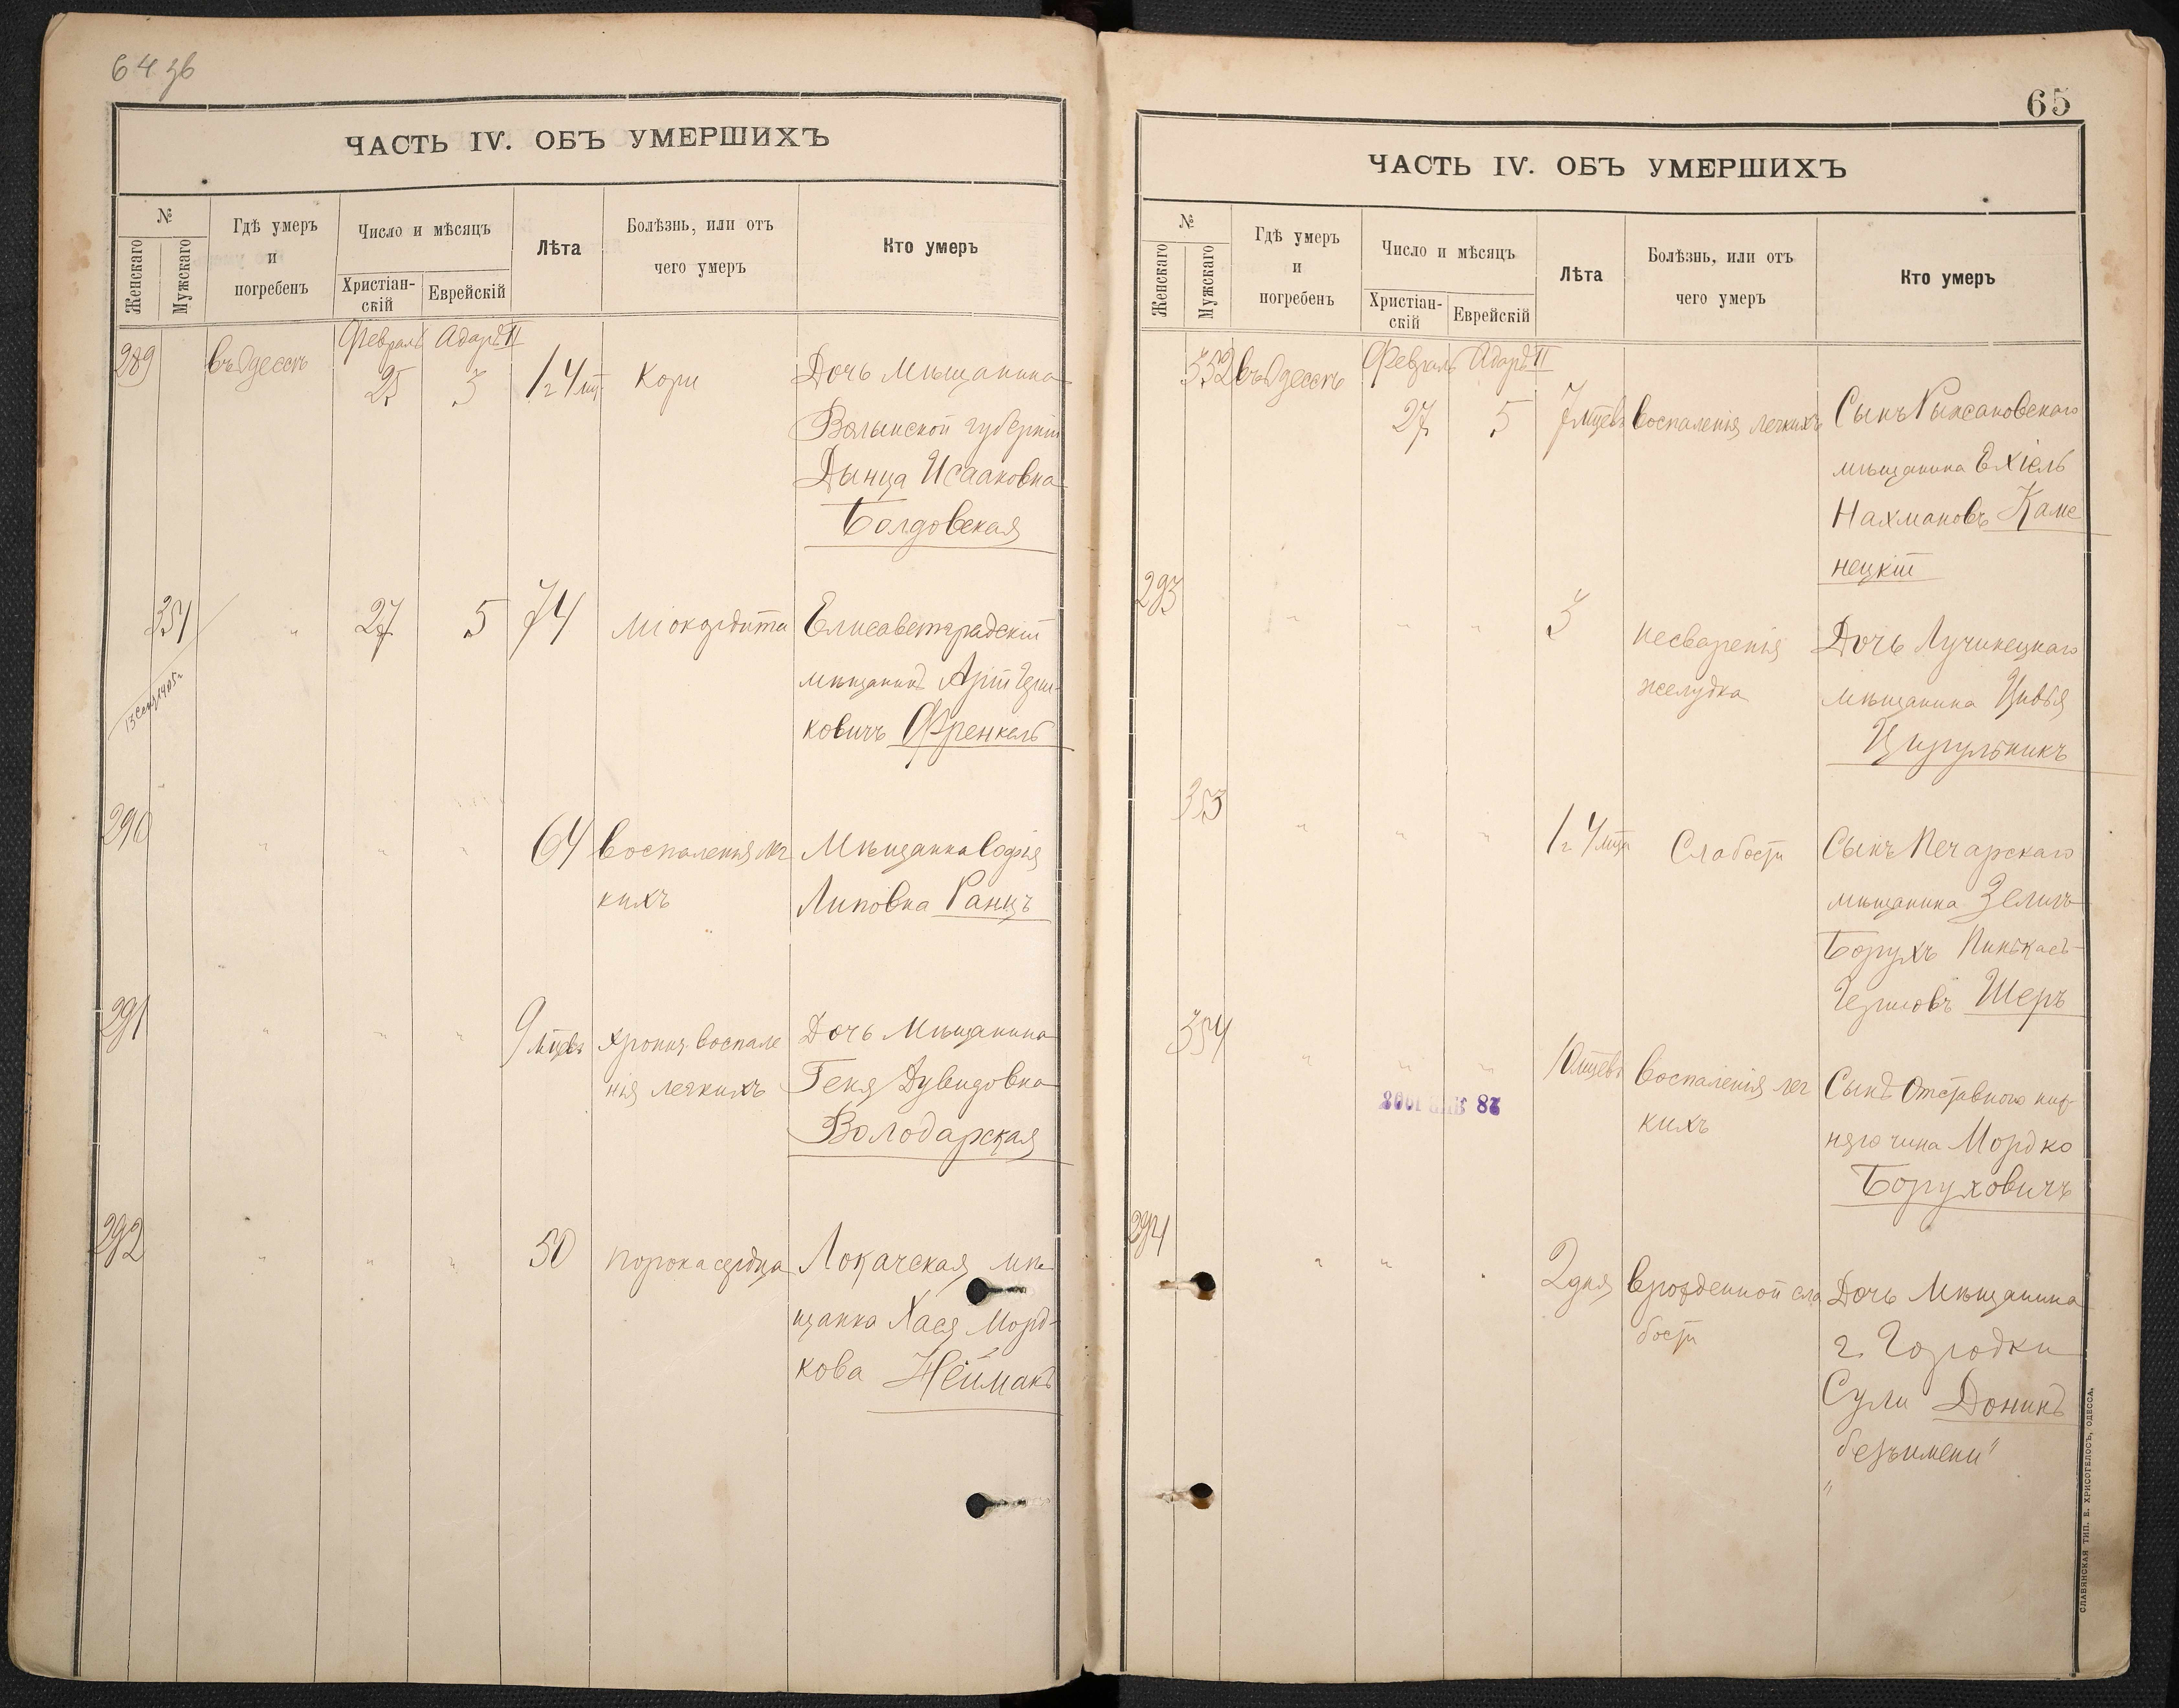 64 зв
ЧАСТЬ IV. ОБЪ УМЕРШИХЪ
№
Женскаго
Мужскаго
Гдѣ умеръ
и
погребенъ
Число и мѣсяцъ
Христіан-
скій
Еврейскій
Лѣта
Болѣзнь, или отъ
чего умеръ
Кто умеръ
289
въ Одессѣ
Февраль Адаръ II
25 3
1 г 4 мца
Кори
Дочь мѣщанина
Волынской губерніи
Дынца Исааковна
Болдовская
351
13 Сент 1905 г
" 27 5 74
міокардита
Елисаветградскій
мѣщанинъ Арій Герш-
ковичъ Френкель
290
" " " 64
воспаленія лег
кихъ
Мѣщанка Софія
Липовна Ранцъ
291
" " " 9 мцевъ
хронич. воспале
нія легкихъ
Дочь мѣщанина
Геня Дувидовна
Володарская
292
" " " 50
порока сердца
Локачская мѣ
щанка Хася Морд-
кова Неймакъ
65
ЧАСТЬ IV. ОБЪ УМЕРШИХЪ
№
Женскаго
Мужскаго
Гдѣ умеръ
и
погребенъ
Число и мѣсяцъ
Христіан-
скій
Еврейскій
Лѣта
Болѣзнь, или отъ
чего умеръ
Кто умеръ
352
въ Одессѣ
Февраль Адаръ II
27 5
7 мцевъ
воспаленія легкихъ
Сынъ
мѣщанина Ехіель
Нахмановъ Каме
нецкій
293
" " " 3
несваренія
желудка
Дочь Лучинецкаго
мѣщанина Цивья
Цирульникъ
353
" " " 1 г 4 мца
Слабости
Сынъ Печарскаго
мѣщанина Зелигъ
Борухъ Пинькасъ-
Гершовъ Шеръ
354
" " "
10 мцевъ
воспаленія лег
кихъ
Сынъ Отставного ниж-
няго чина Мордко
Боруховичъ
294
" "
2 дня
врожденной сла
бости
Дочь мѣщанина
г. Городки
Сули Донинъ
"безъимени"
СЛАВЯНСКАЯ ТИП. Е. ХРИСОГЕЛОСЪ, ОДЕССА.